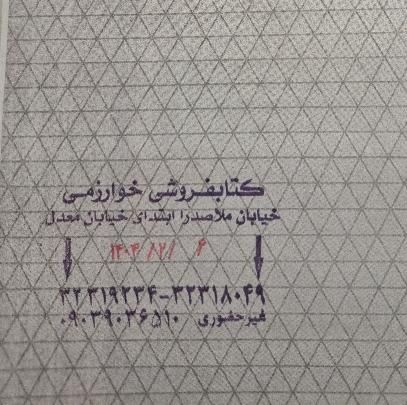 کتابفروشی خوارزمی
خیابان ملاصدرا ابتدای خیابان معدل
۱۴۰۴/۲/۶
۳۲۳۱۹۲۳۴-۳۲۳۱۸۰۴۹
غیرحضوری ۰۹۰۳۹۰۳۶۵۱۰